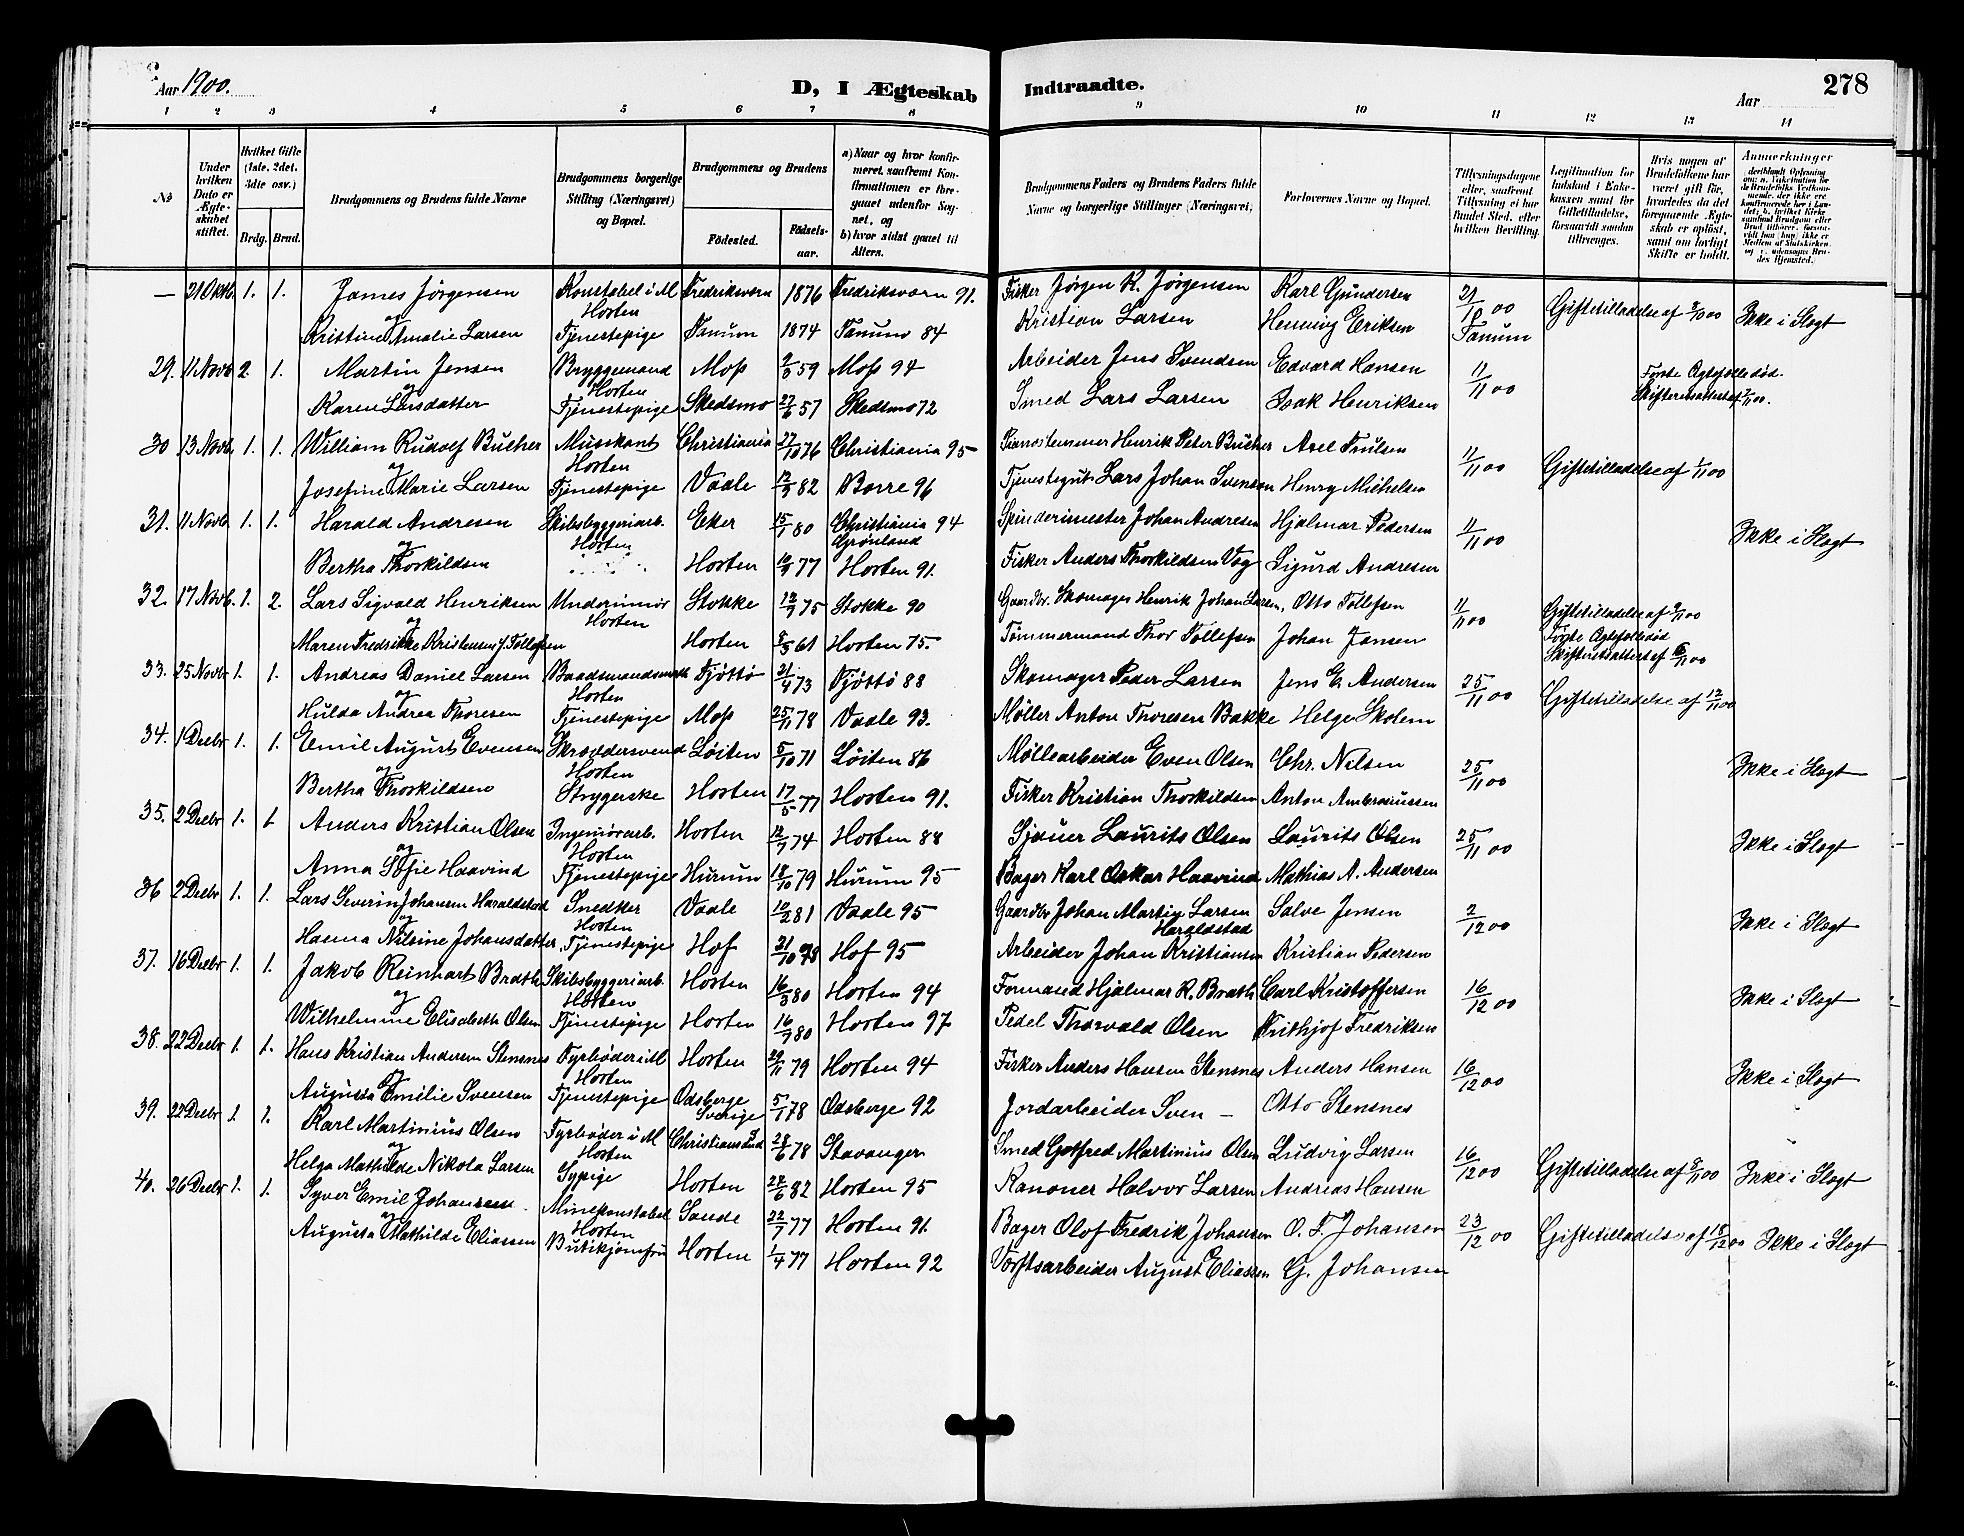 Aar 1900.
D, I Ægteskab
Indtraadte.
Aar
278
1 2 3 4 5 6 7 8 9 10 11 12 13 14
No
Under hvilken Dato er Ægteskabet stiftet.
Hvilket Gifte (1ste, 2det, 3die osv.)
Brdg. Brud.
Brudgommens og Brudens fulde Navne
Brudgommens borgerlige Stilling (Næringsvei) og Bopæl.
Brudgommens og Brudens
Fødested.
Fødselsaar.
a) Naar og hvor konfirmeret, saafremt Konfirmationen er foregaaet udenfor Sognet, og b) hvor sidst gaaet til Alters.
Brudgommens Faders og Brudens Faders fulde Navne og borgerlige Stillinger (Næringsvei)
Forlovernes Navne og Bopæl.
Tillysningsdagene eller, saafremt Tillysning ei har fundet Sted, efter hvilken Bevilling.
Legitimation for Indskud i Enkekassen samt for Giftetilladelse, forsaavidt saadan tiltrænges.
Hvis nogen af Brudefolkene har været gift før, hvorledes da det foregaaende Ægteskab er opløst, samt om lovligt Skifte er holdt.
Anmerkninger
— 21 Oktb. 1. 1. James Jørgensen Konstabel i M Horten Fredriksværn 1876 Fredriksværn 91. Fisker Jørgen K. Jørgensen Karl Gundersen 21/10 00 Tanum Giftetilladelse af 8/10 00 Ikke i Slægt
og
Kristine Amalie Larsen Tjenestepige Tanum 1874 Tanum 84 Kristian Larsen Henning Eriksen
29. 11 Novb. 2. 1. Martin Jensen Bryggemand Horten Moss 2/3 59 Moss 94 Arbeider Jens Svendsen Edvard Hansen 11/11 00 Første Ægtefælle død. Skifteretsattest af 7/11 00.
og
Karen Larsdatter Tjenestepige Skedsmo 27/6 57 Skedsmo 72 Smed Lars Larsen Isak Henriksen
30 13 Novb. 1. 1. William Rudolf Buther Musikant Horten Christiania 27/10 76 Christiania 95 Pianostemmer Henrik Peter Buther Axel Trulsen 11/11 00 Giftetilladelse af 1/11 00
og
Josefine Marie Larsen Tjenestepige Vaale 12/3 82 Borre 96 Tjenestegut Lars Johan Svensen Henry Michelsen
31. 11 Novb. 1. 1. Harald Andresen Skibsbyggeriarb. Horten Eker 15/1 80 Christiania 94 Grønland Spinderimester Johan Andresen Hjalmar Pedersen 11/11 00 Ikke i Slægt
og
Bertha Thorkildsen Horten 10/9 77 Horten 91. Fisker Anders Thorkildsen Vog Sigurd Andresen
32. 17 Novb. 1. 2. Lars Sigvald Henriksen Underminør Horten Stokke 12/7 75 Stokke 90 Gaardbr. Skomager Henrik Johan Larsen, Otto Tollefsen 11/11 00 Giftetilladelse af 9/11 00
og
Maren Fredrikke Kristensen f. Tollefsen Horten 8/5 61 Horten 75. Tømmermand Thor Tollefsen Johan Jansen Første Ægtefælle død Skifteretsattest af 6/11 00
33. 25 Novb. 1. 1. Andreas Daniel Larsen Baadsmandsmath Horten Tjøttø 21/4 73 Tjøttø 88 Skomager Peder Larsen Jens E. Andersen 25/11 00 Giftetilladelse af 12/11 00
og
Hulda Andrea Thoresen Tjenestepige Moss 25/11 78 Vaale 93. Møller Anton Thoresen Bakke Helge Skolem
34. 1 Decbr. 1. 1. Emil August Evensen Skræddersvend Horten Løiten 5/10 71 Løiten 86 Møllearbeider Even Olsen Chr. Nilsen 25/11 00 Ikke i Slægt
og
Bertha Thorkildsen Strygerske Horten 17/5 77 Horten 91. Fisker Kristian Thorkildsen Anton Ambrosiussen
35. 2 Decbr 1. 1 Anders Kristian Olsen Ingeniørarb. Horten Horten 12/7 74 Horten 88 Sjauer Laurits Olsen Laurits Olsen 25/11 00 Ikke i Slægt
og
Anna Sofie Haavind Tjenestepige Hurum 18/10 79 Hurum 95 Bager Karl Oskar Haavind Mathias A. Andersen
36 2 Decbr. 1. 1. Lars Severin Johansen Haraldstad Snedker Horten Vaale 10/2 81 Vaale 95 Gaardbr Johan Martin Larsen Haraldstad Salve Jensen 2/12 00 Ikke i Slægt
og
Hanna Nilsine Johansdatter Tjenestepige Hof 21/10 78 Hof 95 Arbeider Johan Kristiansen Kristian Pedersen
37. 16 Decbr 1. 1. Jakob Reinhart Brath Skibsbyggeriarb. Horten Horten 16/3 80 Horten 94 Formand Hjalmar R. Brath Carl Kristoffersen 16/12 00 Ikke i Slægt
og
Wilhelmine Elisabeth Olsen Tjenestepige Horten 16/7 80 Horten 97 Pedel Thorvald Olsen Frithjof Fredriksen
38. 22 Decbr 1. 1. Hans Kristian Andersen Stensnes Fyrbøder i M Horten Horten 29/11 79 Horten 94 Fisker Anders Hansen Stensnes Anders Hansen 16/12 00 Ikke i Slægt
og
Augusta Emilie Svensen Tjenestepige Odsberge Sverige 5/1 78 Odsberge 92 Jordarbeider Sven — Otto Stensnes
39. 22 Decbr 1. 1. Karl Martinius Olsen Fyrbøder i M Horten Christianssund 28/6 78 Stavanger Smed Gotfred Martinius Olsen Ludvig Larsen 16/12 00 Giftetilladelse af 8/11 00 Ikke i Slægt
og
Helga Mathilde Nikola Larsen Sypige Horten 27/6 82 Horten 95 Kanoner Halvor Larsen Andreas Hansen
40. 26 Decbr 1. 1. Syver Emil Johansen Minekonstabel Horten Sande 22/7 77 Horten 91. Bager Olof Fredrik Johansen O. F. Johansen 23/12 00 Giftetilladelse af 15/12 00 Ikke i Slægt
og
Augusta Mathilde Eliassen Butikjomfru Horten 1/4 77 Horten 92 Værftsarbeider August Eliassen G. Johansen